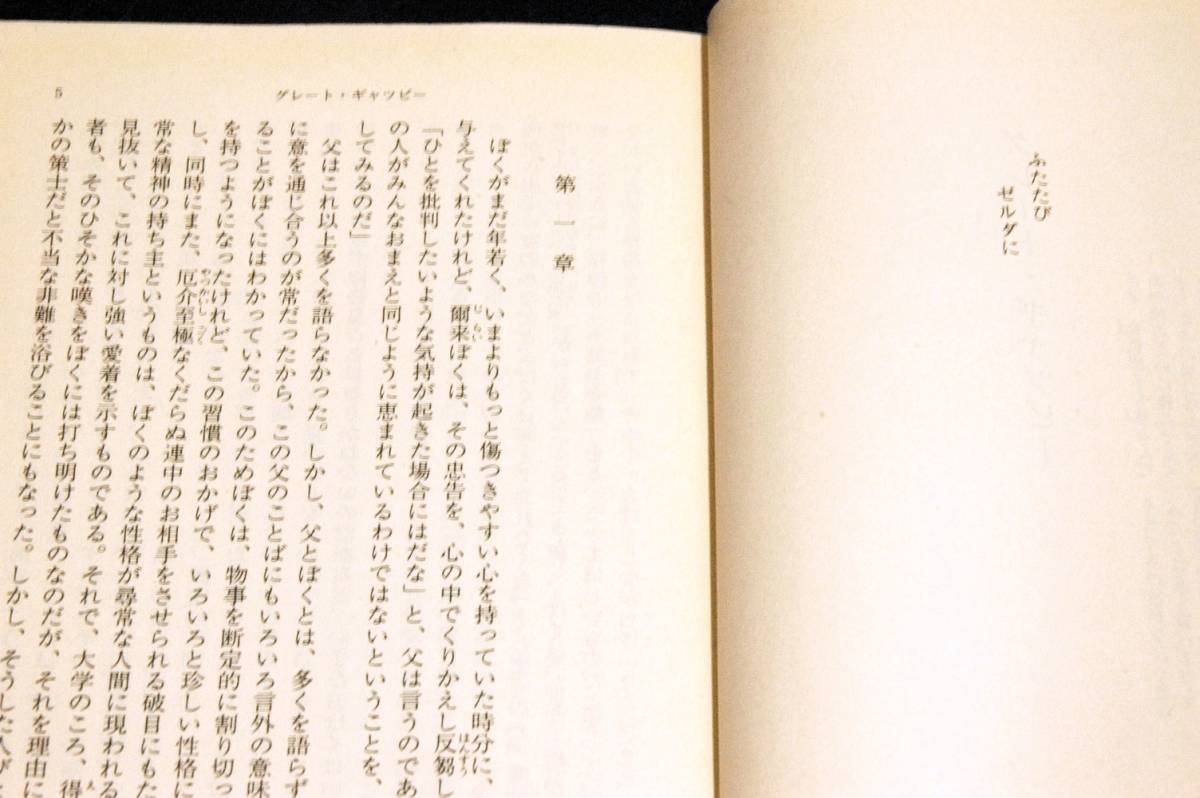 ふたたび
ゼルダに
グレート・ギャツビー
5
第一章
ぼくがまだ年若く、いまよりもっと傷つきやすい心を持っていた時分に、
与えてくれたけれど、爾来ぼくは、その忠告を、心の中でくりかえし反芻し
「ひとを批判したいような気持が起きた場合にはだな」と、父は言うのであ
の人がみんなおまえと同じように恵まれているわけではないということを、
してみるのだ」
父はこれ以上多くを語らなかった。しかし、父とぼくとは、多くを語らず
に意を通じ合うのが常だったから、この父のことばにもいろいろ言外の意味
ることがぼくにはわかっていた。このためぼくは、物事を断定的に割り切っ
を持つようになったけれど、この習慣のおかげで、いろいろと珍しい性格に
し、同時にまた、厄介至極なくだらぬ連中のお相手をさせられる破目にもた
常な精神の持ち主というものは、ぼくのような性格が尋常な人間に現われる
見抜いて、これに対し強い愛着を示すものである。それで、大学のころ、得
者も、そのひそかな嘆きをぼくには打ち明けたものなのだが、それを理由に
かの策士だと不当な非難を浴びることにもなった。しかし、そうした人びと